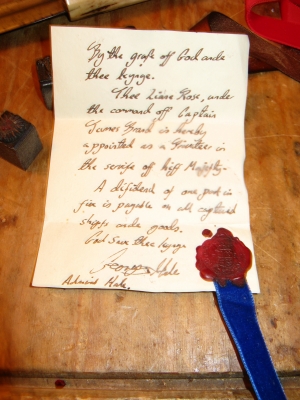 By the grafe off God ande
thee kynge.
Thee Rose, unde
the command off Captain
James Brand is hereby
appointed as a Privateer in
the servife off hiff Majefty.
A difithend of one part in
five is payable on all captured
shipps ande goods.
God Save thee kynge
Hale
Admiral Hale.